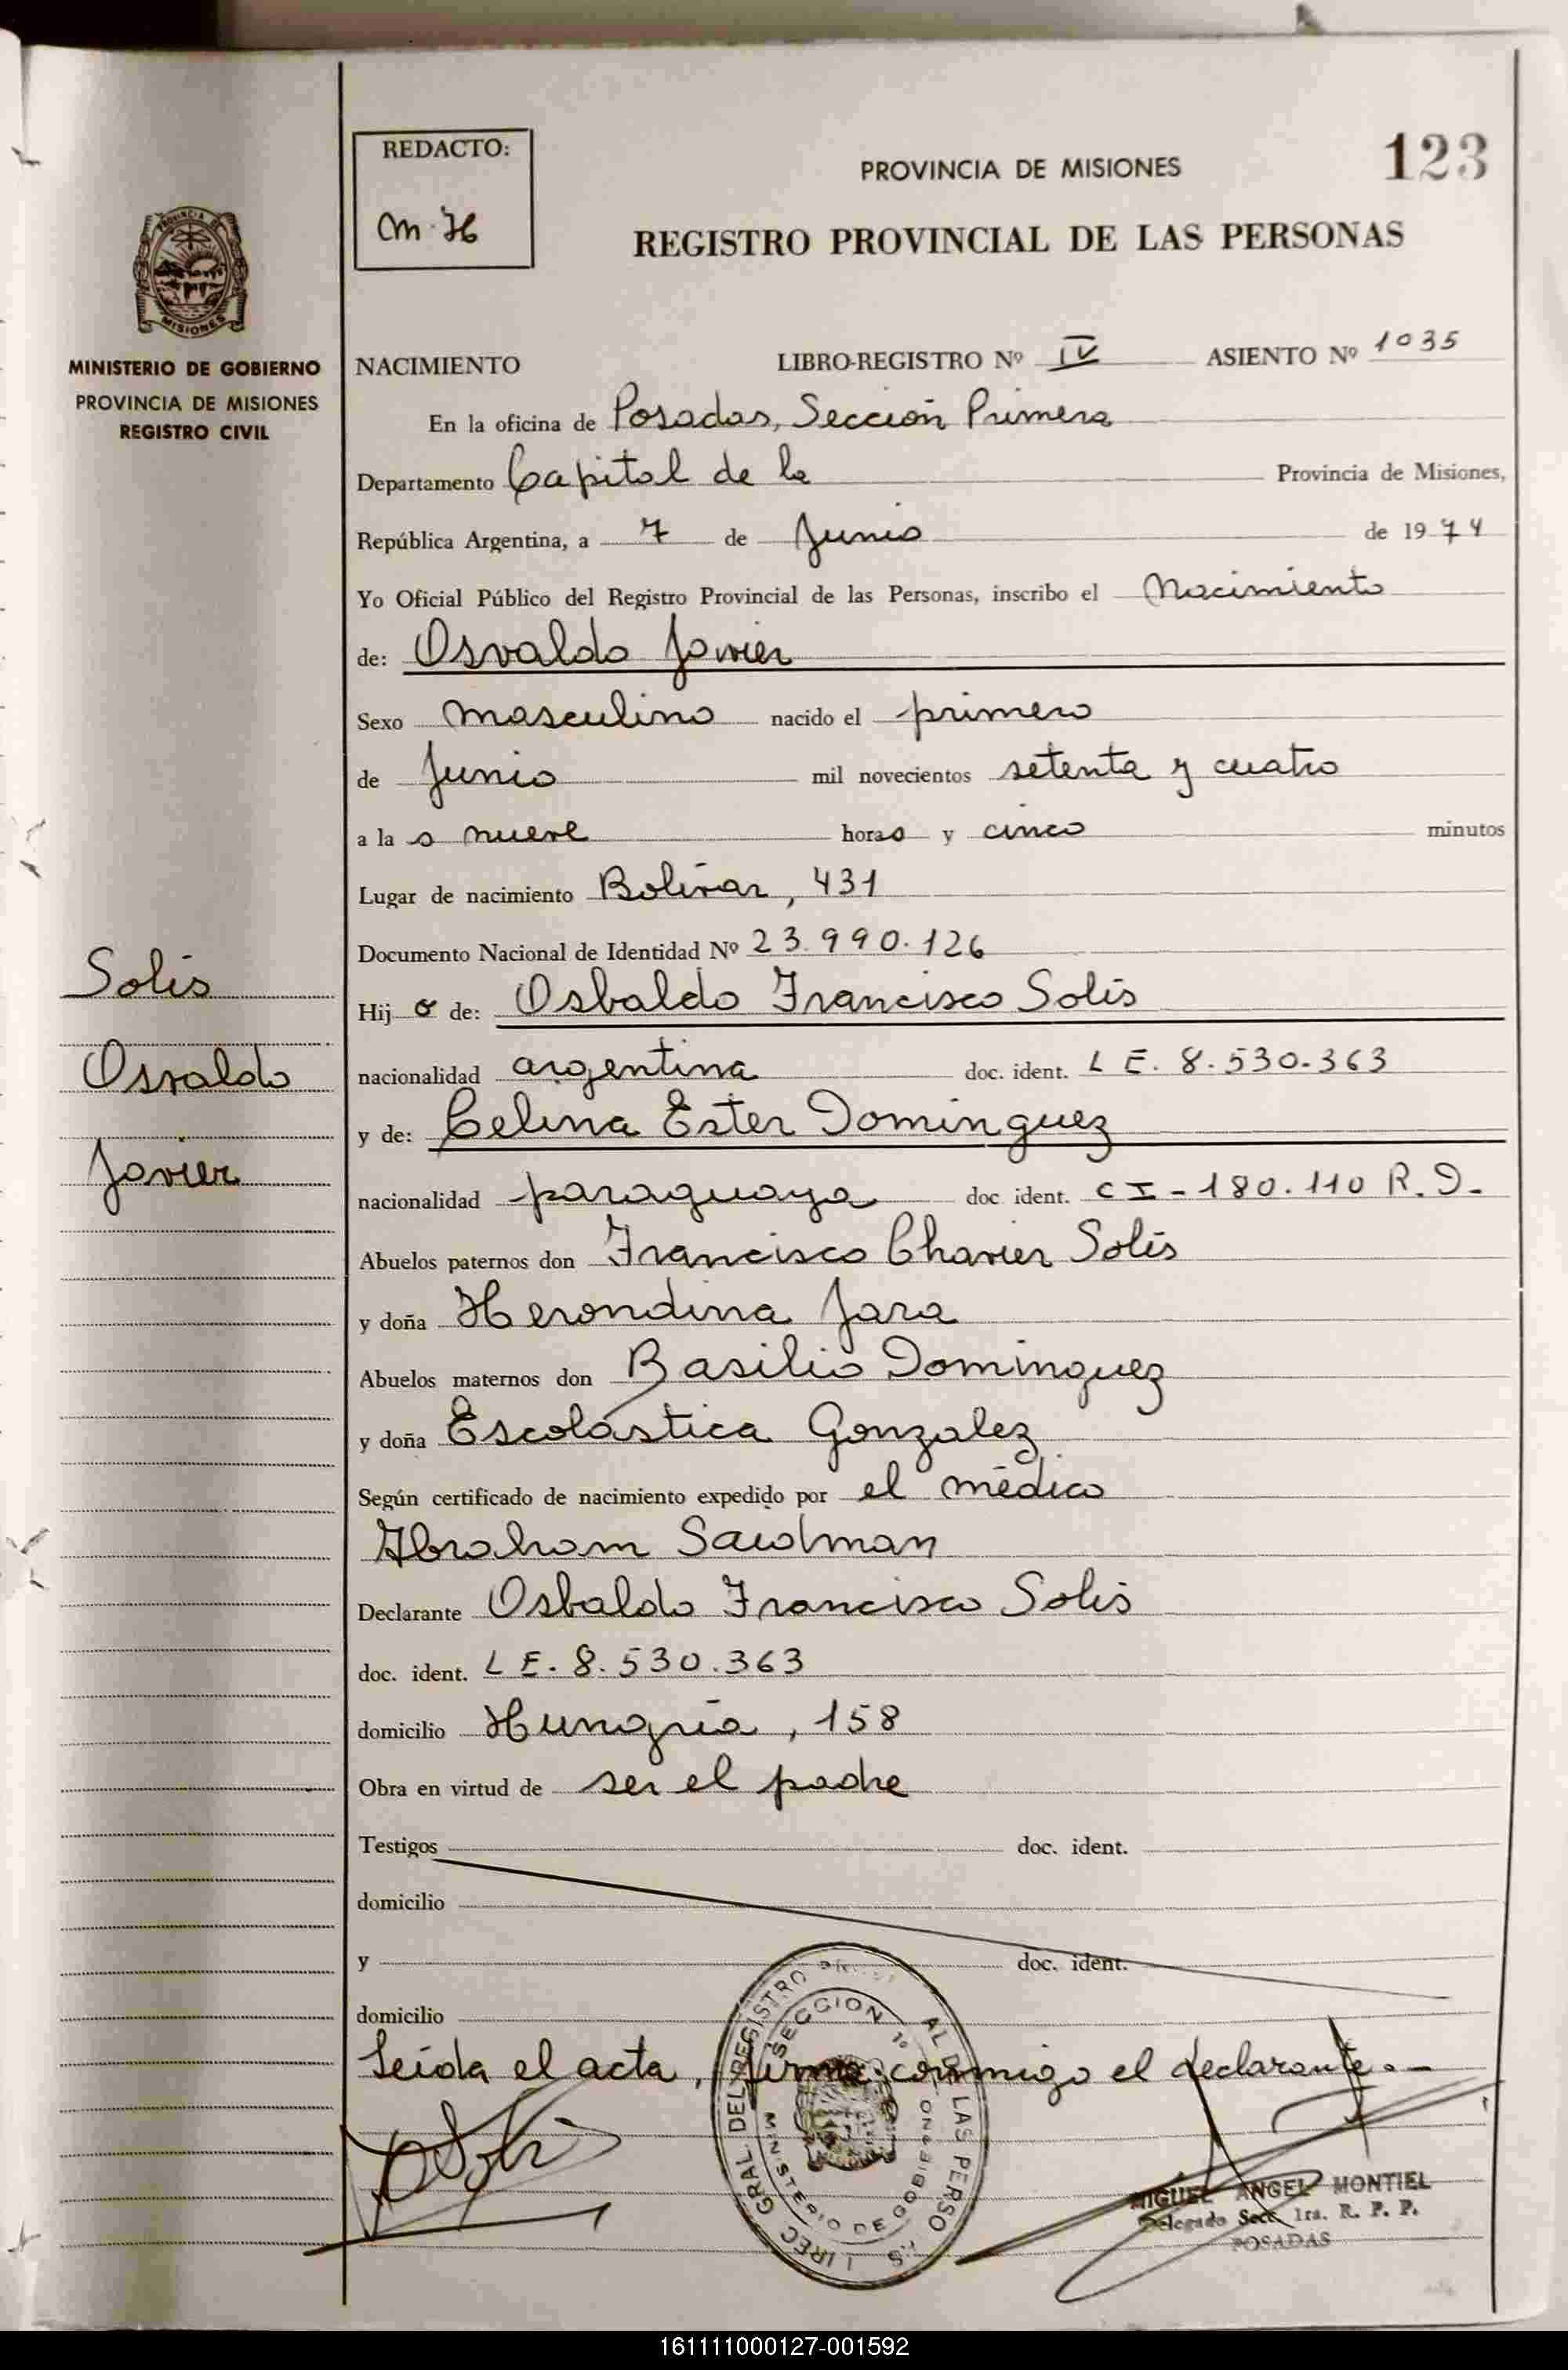 REDACTO:
M.H
PROVINCIA DE MISIONES
123
REGISTRO PROVINCIAL DE LAS PERSONAS
MISIONES
MINISTERIO DE GOBIERNO
PROVINCIA DE MISIONES
REGISTRO CIVIL
NACIMIENTO LIBRO-REGISTRO Nº IV ASIENTO Nº 1035
En la oficina de Posadas, Sección Primera
Departamento Capital de la Provincia de Misiones,
República Argentina, a 7 de Junio de 1974
Yo Oficial Público del Registro Provincial de las Personas, inscribo el Nacimiento
de: Osvaldo Javier
Sexo masculino nacido el primero
de Junio mil novecientos setenta y cuatro
a la s nueve horas y cinco minutos
Lugar de nacimiento Bolívar, 431
Documento Nacional de Identidad Nº 23.990.126
Hij o de: Osbaldo Francisco Solís
nacionalidad argentina doc. ident. L E. 8.530.363
y de: Celina Ester Domínguez
nacionalidad paraguaya doc. ident. C I - 180.110 R.D.
Abuelos paternos don Francisco Chavier Solís
y doña Herondina Jara
Abuelos maternos don Basilio Domínguez
y doña Escolástica Gonzalez
Según certificado de nacimiento expedido por el médico
Abraham Sawlman
Declarante Osbaldo Francisco Solís
doc. ident. L E. 8.530.363
domicilio Hungría, 158
Obra en virtud de ser el padre
Testigos doc. ident.
domicilio
y doc. ident.
domicilio
Leída el acta, firma conmigo el declarante.-
Solís
Osvaldo
Javier
SECCION 1º
MINISTERIO DE GOBIERNO
MIGUEL ANGEL MONTIEL
Delegado Secc. 1ra. R. P. P.
POSADAS
161111000127-001592